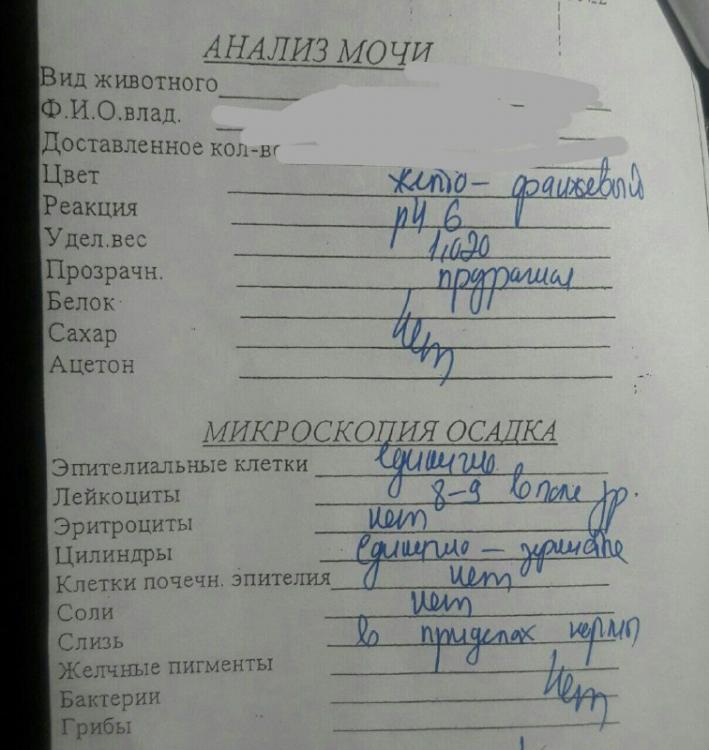 АНАЛИЗ МОЧИ
Вид животного
Ф.И.О.влад.
Доставленное кол-во
Цвет желто - оранжевый
Реакция pH 6
Удел.вес 1,020
Прозрачн. прозрачная
Белок
Сахар нет
Ацетон
МИКРОСКОПИЯ ОСАДКА
Эпителиальные клетки единично
Лейкоциты 8-9 в поле зр.
Эритроциты нет
Цилиндры единично - зернистые
Клетки почечн. эпителия нет
Соли нет
Слизь в приделах нормы
Желчные пигменты
Бактерии нет
Грибы